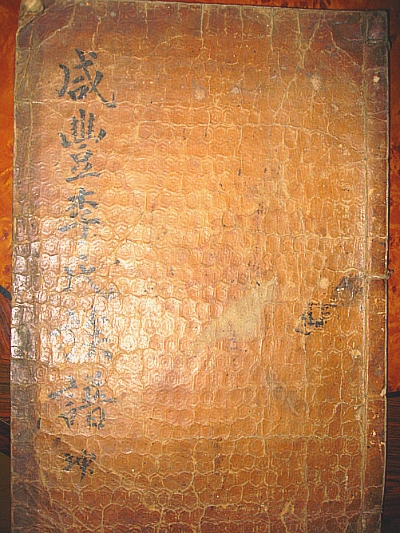 咸豊李氏族譜